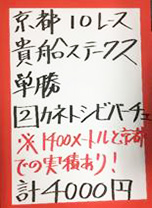 京都10レース
貴船ステークス
単勝
[2]カネトシビバーチェ
※1400メートルと京都
での実積あり!
計4000円